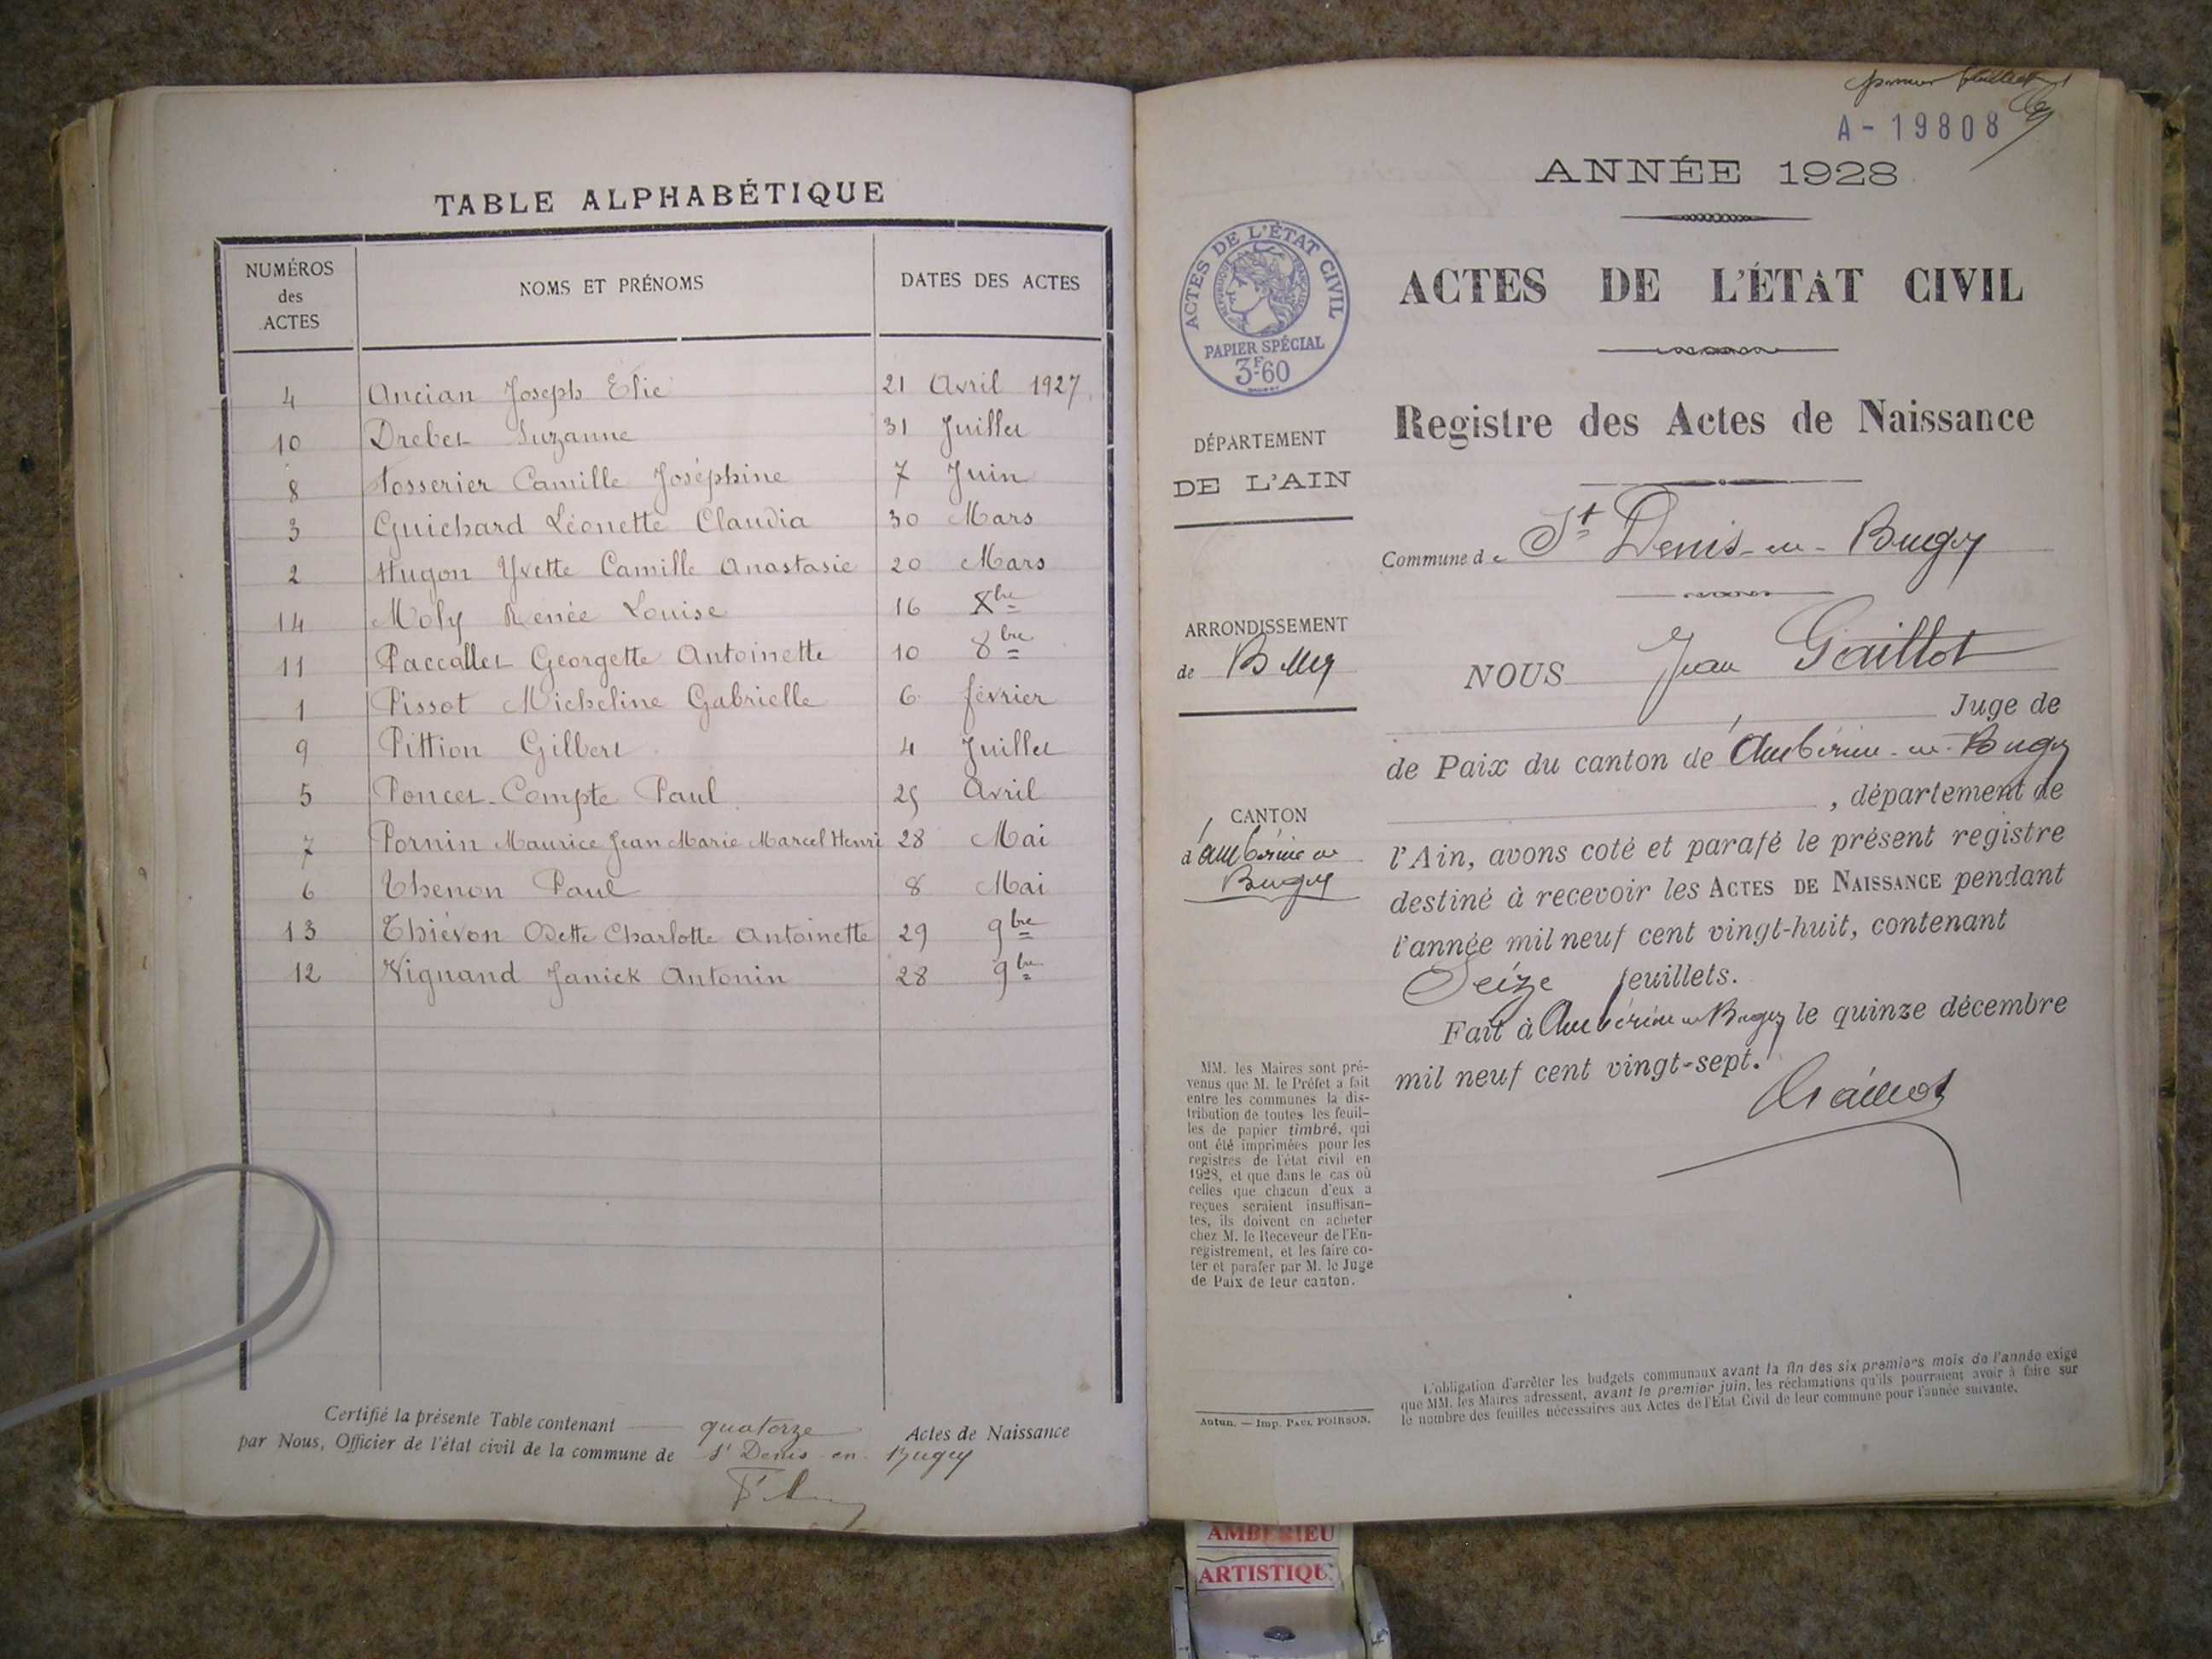 TABLE ALPHABÉTIQUE
NUMÉROS des ACTES
NOMS ET PRÉNOMS
DATES DES ACTES
4 Ancian Joseph Élie 21 Avril 1927
10 Drebet Suzanne 31 Juillet
8 Fosserier Camille Joséphine 7 Juin
3 Guichard Léonette Claudia 30 Mars
2 Hugon Yvette Camille Anastasie 20 Mars
14 Moly Renée Louise 16 Xbre
11 Paccallet Georgette Antoinette 10 8bre
1 Pissot Micheline Gabrielle 6 février
9 Pittion Gilbert 4 Juillet
5 Poncet-Compte Paul 25 Avril
7 Pornin Maurice Jean Marie Marcel Henri 28 Mai
6 Thenon Paul 8 Mai
13 Thiévon Odette Charlotte Antoinette 29 9bre
12 Vignand Janick Antonin 28 9bre
Certifié la présente Table contenant quatorze Actes de Naissance
par Nous, Officier de l'état civil de la commune de St Denis en Bugey
premier feuillet
A-19808
ANNÉE 1928
ACTES DE L'ÉTAT CIVIL
RÉPUBLIQUE FRANÇAISE
PAPIER SPÉCIAL
3F60
ACTES DE L'ÉTAT CIVIL
Registre des Actes de Naissance
DÉPARTEMENT
DE L'AIN
Commune de St Denis-en-Bugey
ARRONDISSEMENT
de Belley
NOUS Jean Gaillot
Juge de
de Paix du canton de Ambérieu-en-Bugey
, département de
CANTON
d'Ambérieu en
Bugey
l'Ain, avons coté et parafé le présent registre
destiné à recevoir les ACTES DE NAISSANCE pendant
l'année mil neuf cent vingt-huit, contenant
Seize feuillets.
Fait à Ambérieu en Bugey le quinze décembre
mil neuf cent vingt-sept.
Gaillot
MM. les Maires sont pré-
venus que M. le Préfet a fait
entre les communes la dis-
tribution de toutes les feuil-
les de papier timbré, qui
ont été imprimées pour les
registres de l'état civil en
1928, et que dans le cas où
celles que chacun d'eux a
reçues seraient insuffisan-
tes, ils doivent en acheter
chez M. le Receveur de l'En-
registrement, et les faire co-
ter et parafer par M. le Juge
de Paix de leur canton.
Autun. — Imp. PAUL POIRSON.
L'obligation d'arrêter les budgets communaux avant la fin des six premiers mois de l'année exige
que MM. les Maires adressent, avant le premier juin, les réclamations qu'ils pourraient avoir à faire sur
le nombre des feuilles nécessaires aux Actes de l'État Civil de leur commune pour l'année suivante.
AMBERIEU
ARTISTIQUE